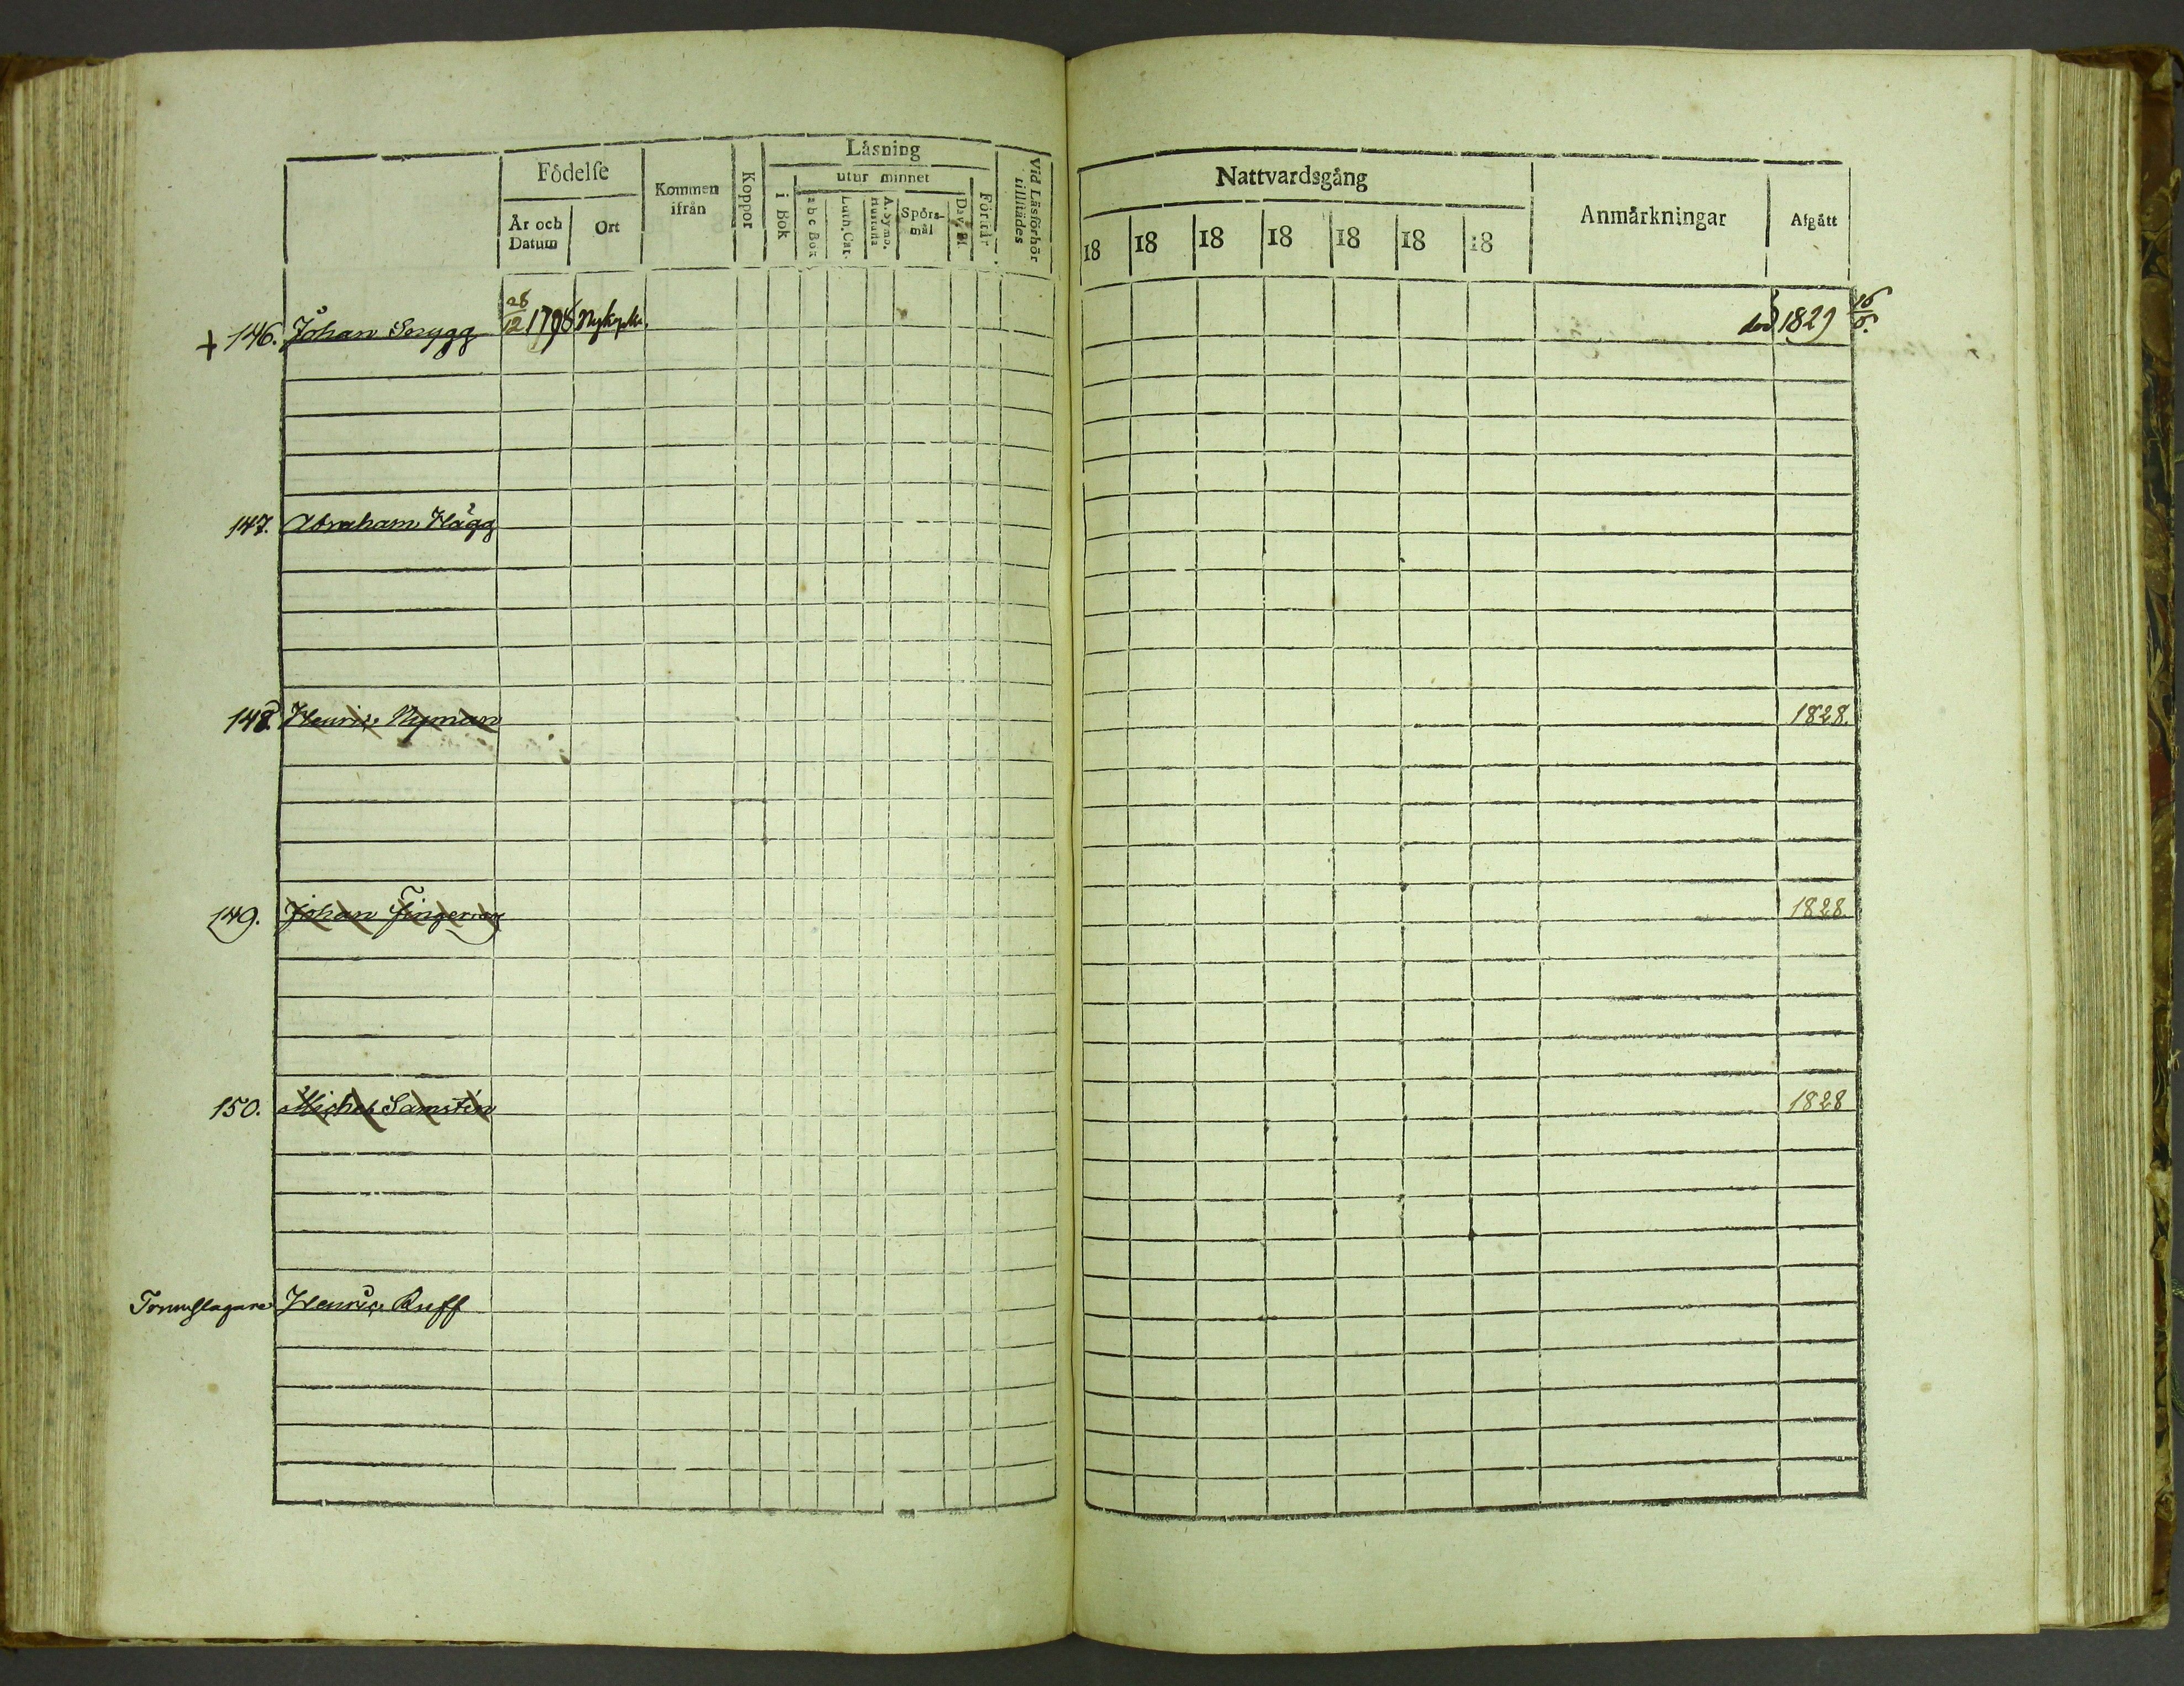 Födelse
År och Datum
Ort
Kommen ifrån
Koppor
Läsning
i Bok
utur minnet
a b c Bok
Luth. Cat.
A. Symb. Hustafla
Spörsmål
Dav. Ps
Förstår
Vid Läsförhör tillstädes
Nattvardsgång
18 18 18 18 18 18 18
Anmärkningar
Afgått
+ 146. Johan Snygg 28/12 1798 Nykyrka. död 1829 16/5.
147. Abraham Hägg
148. Henric Nyman 1828.
149. Johan Fingeroos 1828.
150. Michel Samstén 1828
Trumslagare Henric Ruff